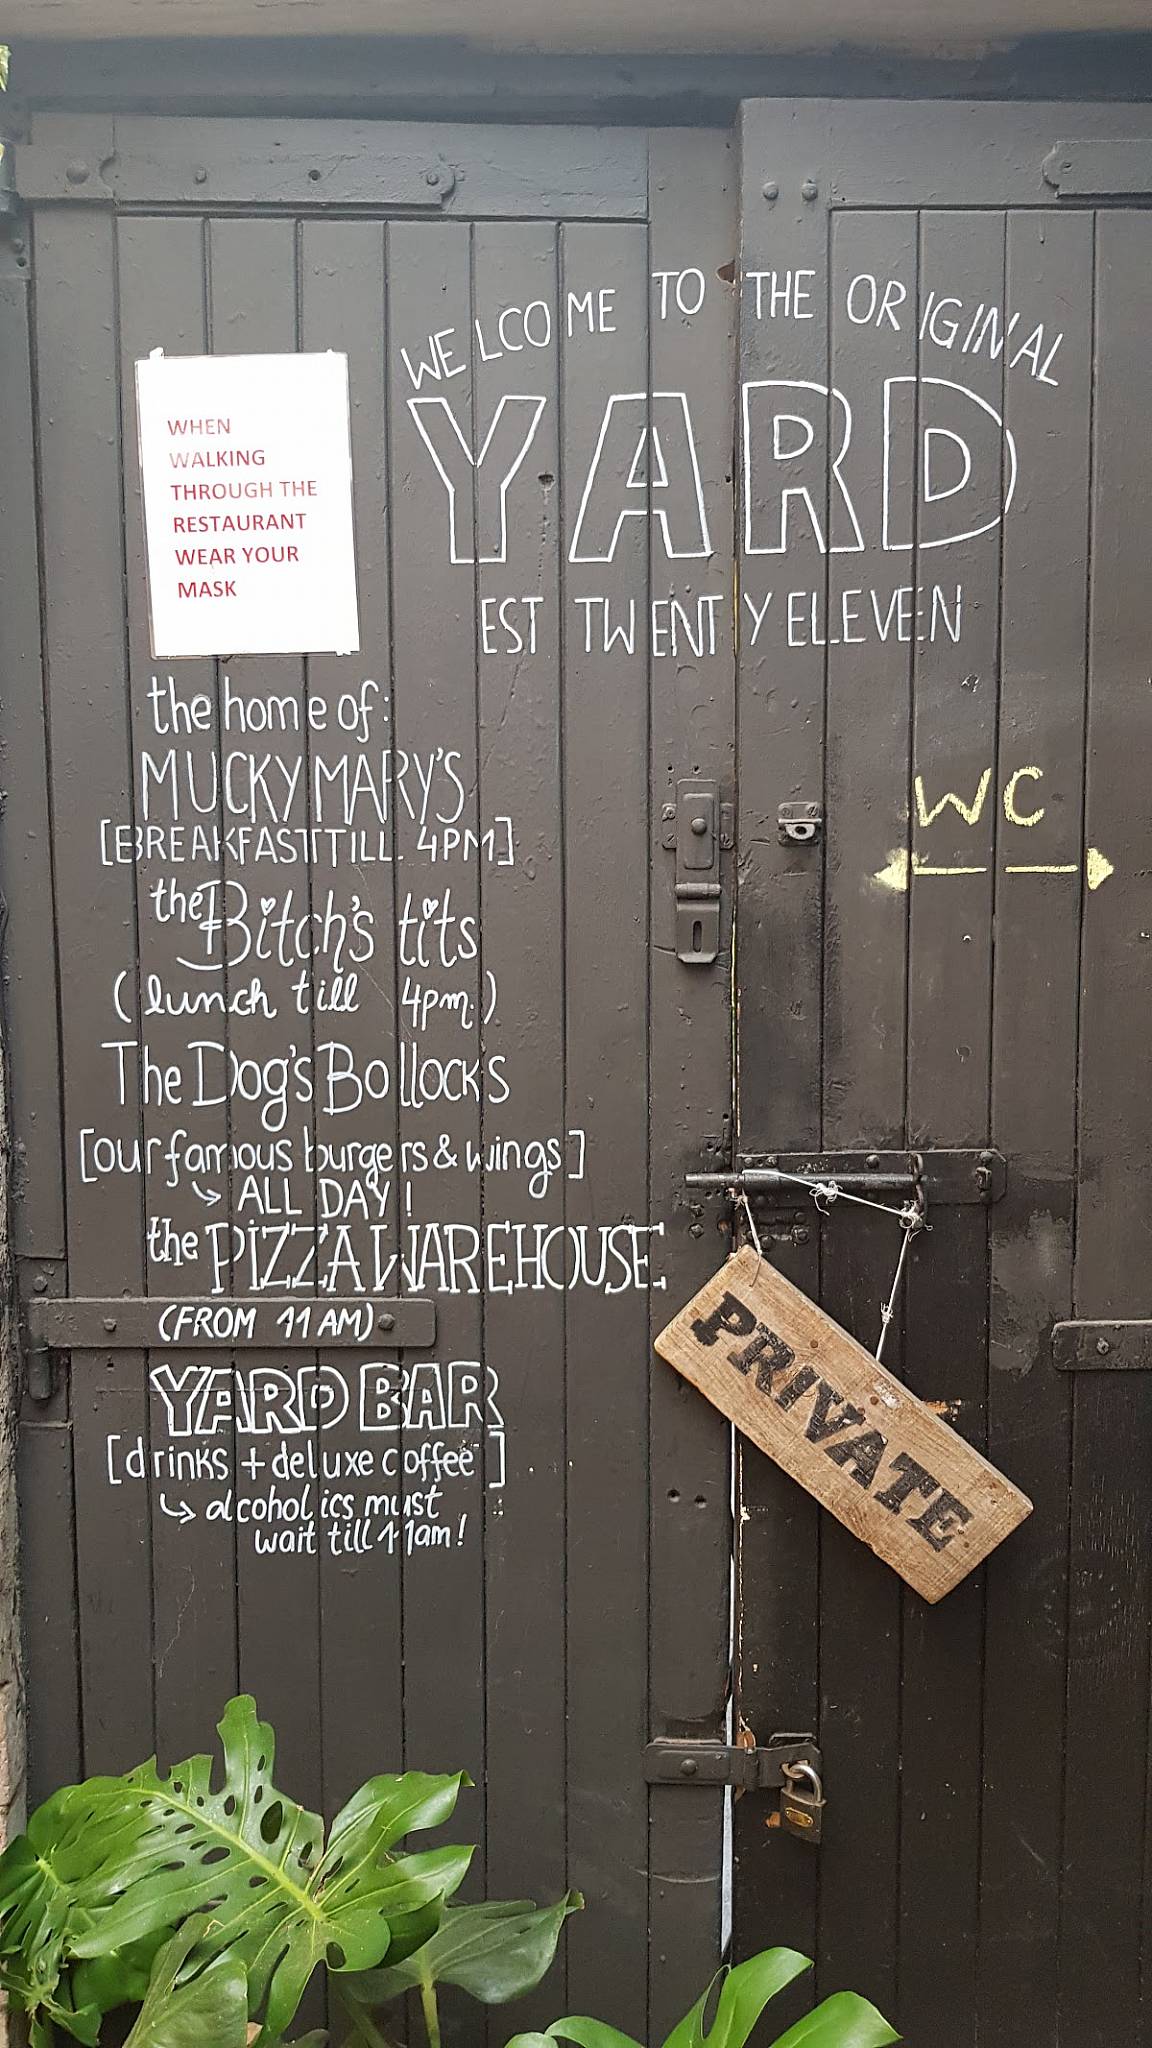 WELCOME TO THE ORIGINAL
YARD
EST TWENTY ELEVEN
WHEN
WALKING
THROUGH THE
RESTAURANT
WEAR YOUR
MASK
the home of:
MUCKY MARY'S
[BREAKFAST TILL 4PM]
the Bitch's tits
(lunch till 4pm.)
The Dog's Bollocks
[our famous burgers & wings]
↳ ALL DAY!
the PIZZA WAREHOUSE
(FROM 11AM)
YARD BAR
[drinks + deluxe coffee]
↳ alcoholics must
wait till 11am!
WC
PRIVATE